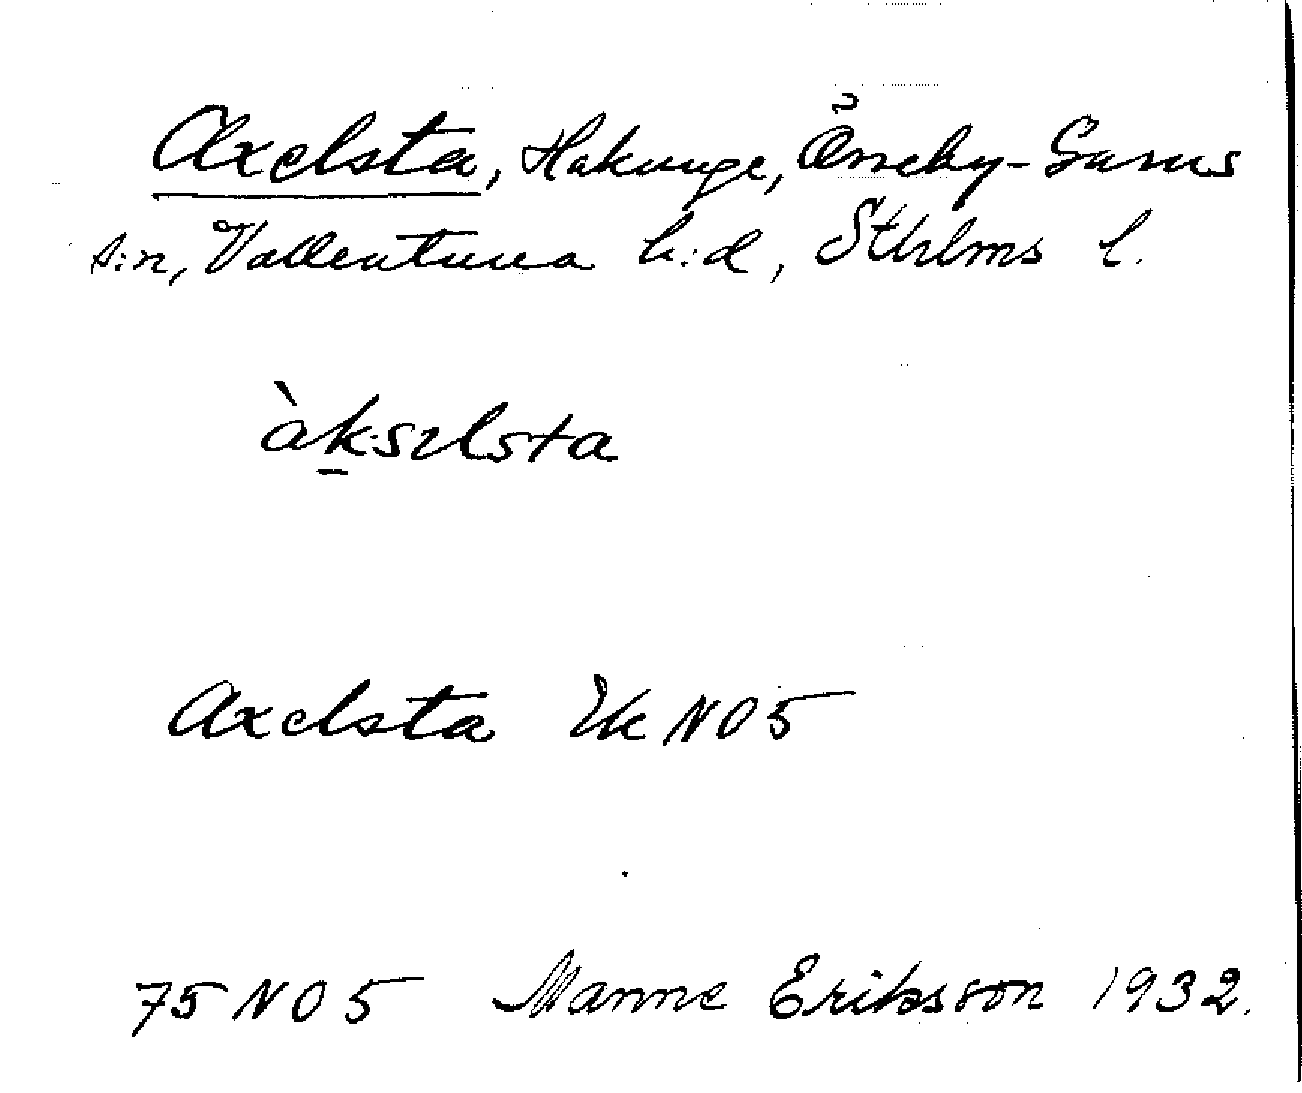 Axelsta, Hakunge, Össeby-Garns
s:n, Vallentuna h:d, Sthlms l.
àk̲sɪlsta
Axelsta Ek NO 5
75 NO 5 Manne Eriksson 1932.